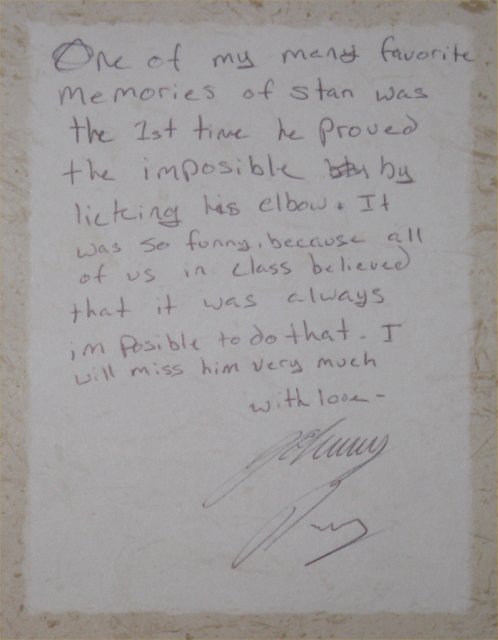 One of my many favorite
memories of Stan was
the 1st time he proved
the imposible by
licking his elbow. It
was so funny, because all
of us in class believed
that it was always
imposible to do that. I
will miss him very much
with love-
Johnny